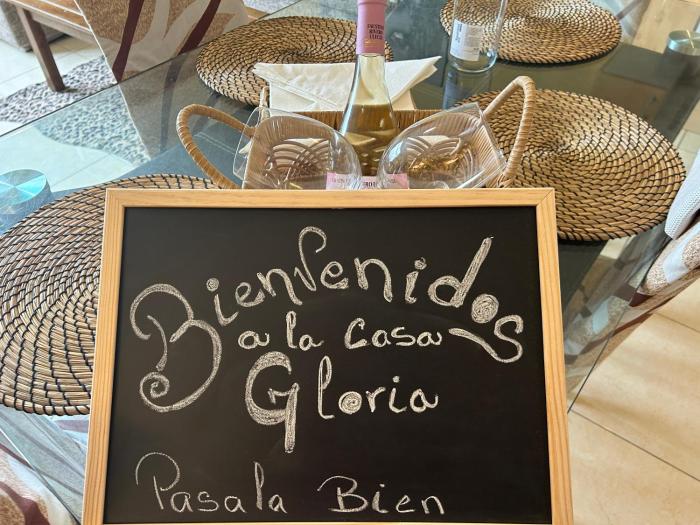 Bienvenidos
a la casa
Gloria
Pasala Bien